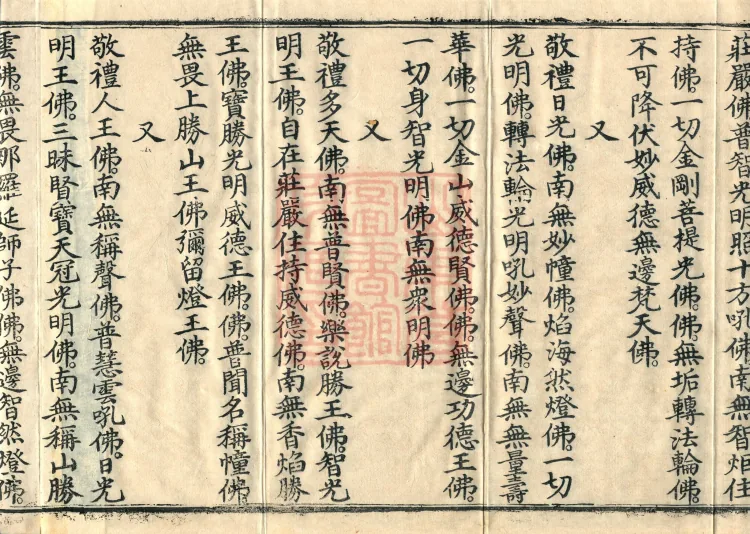 莊嚴佛。普智光明照十方吼佛。南無智炬住
持佛。一切金剛菩提光佛。佛。無垢轉法輪佛。
不可降伏妙威德無邊梵天佛。
又
敬禮日光佛。南無妙幢佛。焰海然燈佛。一切
光明佛。轉法輪光明吼妙聲佛。南無無量壽
華佛。一切金山威德賢佛。佛。無邊功德王佛。
一切身智光明佛南無衆明佛
又
敬禮多天佛。南無普賢佛。樂說勝王佛。智光
明王佛。自在莊嚴住持威德佛。南無香焰勝
王佛。寶勝光明威德王佛。佛。普聞名稱幢佛。
無畏上勝山王佛彌留燈王佛。
又
敬禮人王佛。南無稱聲佛。普慧雲吼佛。日光
明王佛。三昧賢寶天冠光明佛。南無稱山勝
雲佛。無畏那羅延師子佛。佛。無邊智然燈佛。